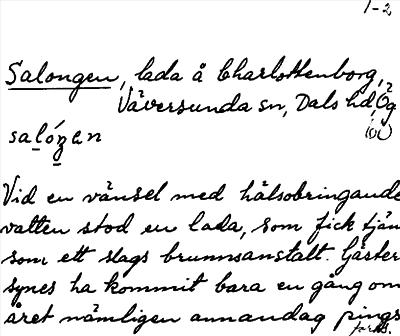 1-2
Salongen, lada å Charlottenborg,
Väversunda sn, Dals hd, Ög
salóŋen
Vid en vänsel med hälsobringande
vatten stod en lada, som fick tjän
som ett slags brunnsanstalt. Gäster
synes ha kommit bara en gång om
året nämligen annandag pings
forts.